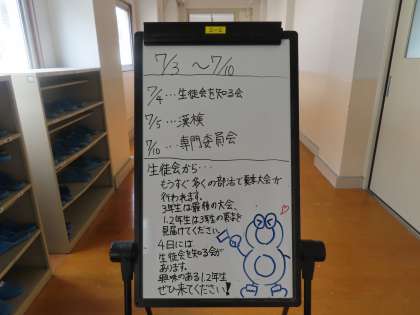 7/3 〜7/10
7/4…生徒会を知る会
7/5…漢検
7/10…専門委員会
生徒会から…
もうすぐ多くの部活で夏季大会が
行われます。
3年生は最後の大会、
1.2年生は3年生の勇姿を
見届けてください。
4日には
生徒会を知る会が
あります。
興味のある1.2年生
ぜひ来てください!